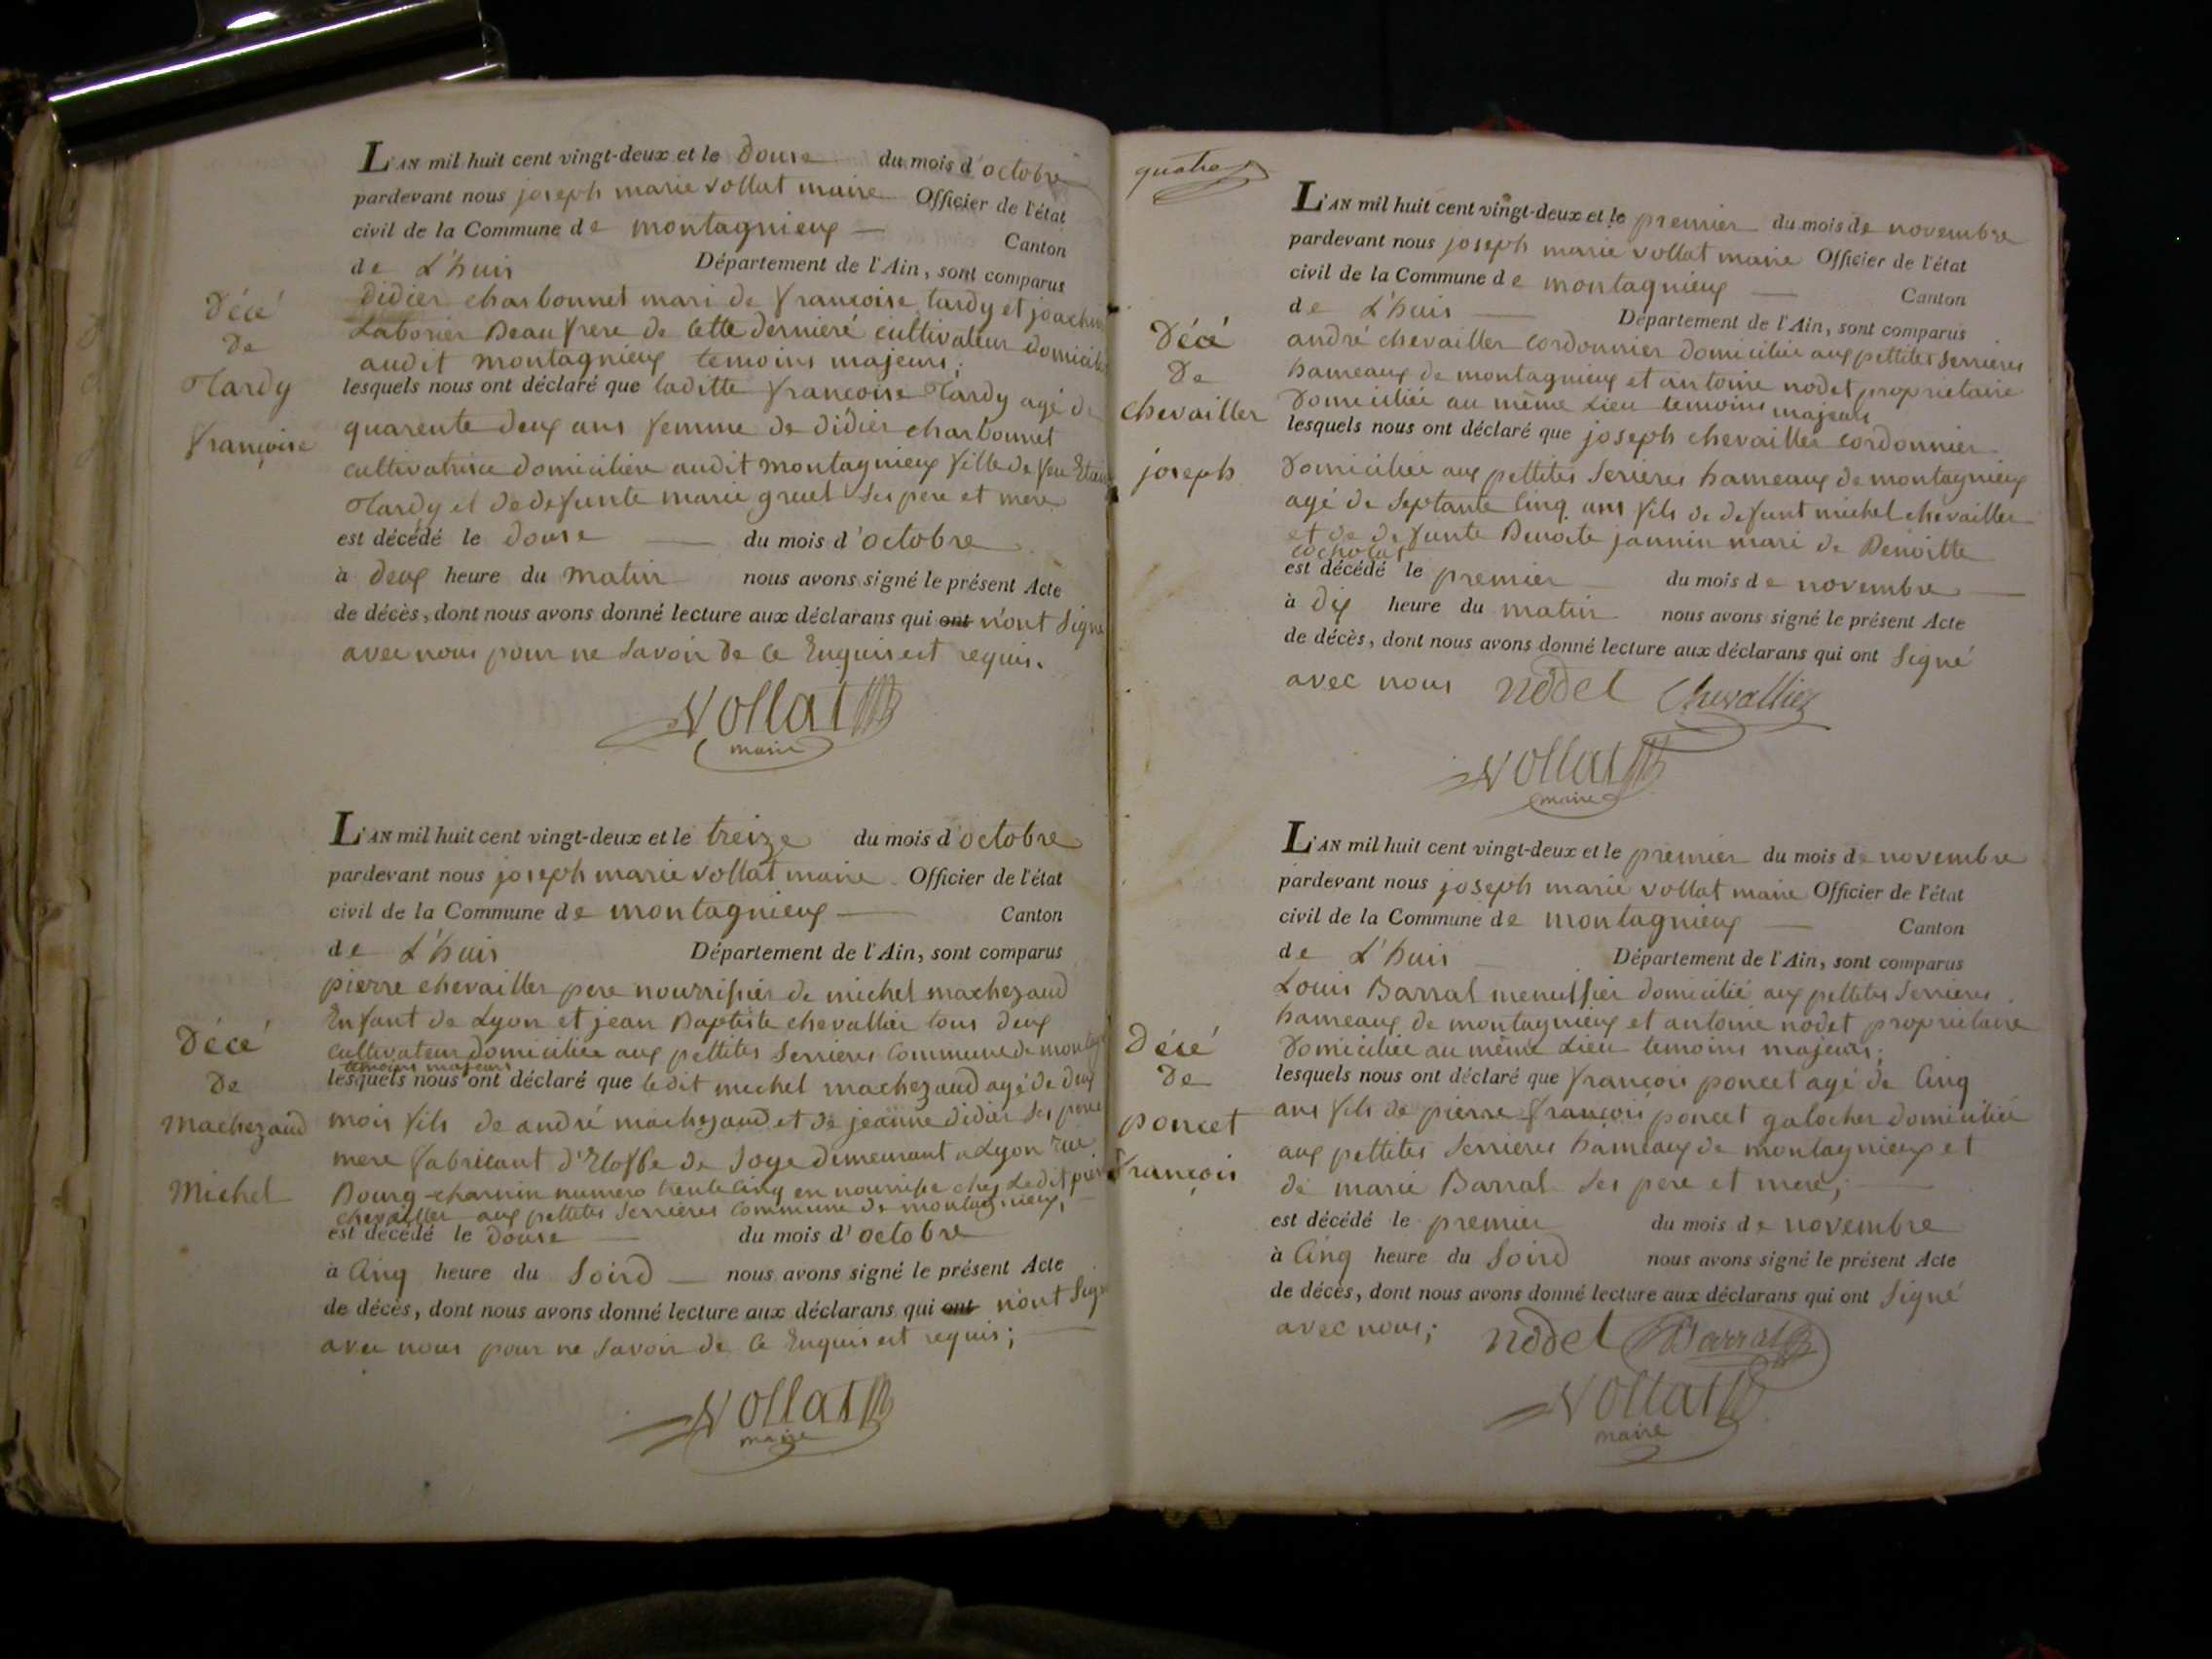 L'AN mil huit cent vingt-deux et le douse du mois d'octobre
pardevant nous joseph marie vollat maire Officier de l'état
civil de la Commune de montagnieux Canton
de L'huis Département de l'Ain, sont comparus
didier charbonnet mari de françoise tardy et joachim
Laborier Beaufrere de Cette derniere cultivateur domicilié
audit montagnieux temoins majeurs;
lesquels nous ont déclaré que laditte françoise Tardy agé de
quarente deux ans femme de didier charbonnet
cultivatrice domiciliée audit montagnieux fille de feu
Tardy et de defunte marie gruel Ses pere et mere
est décédé le douse du mois d'octobre
à deux heure du matin nous avons signé le présent Acte
de décès, dont nous avons donné lecture aux déclarans qui ont n'ont Signé
avec nous pour ne Savoir de Ce Enquis est requis.
Vollat
maire
Décé
De
Tardy
françoise
L'AN mil huit cent vingt-deux et le treize du mois d'octobre
pardevant nous joseph marie vollat maire Officier de l'état
civil de la Commune de montagnieux Canton
de L'huis Département de l'Ain, sont comparus
pierre chevailler pere nourrissier de michel machezaud
Enfant de Lyon et jean Baptiste chevallier tous deux
cultivateur domiciliée aux pettites Serrieres Commune de
temoins majeurs
lesquels nous ont déclaré que ledit michel machezaud agé de deux
mois fils de andré machezaud et de jeanne didier Ses pere
mere fabricant d'Etoffe de Soye demeurant a Lyon rue
Bourg-chanin numero trente Cinq en nourrisse chez Ledit pierre
chevailler aux pettites Serrieres Commune de montagnieux,
est décédé le douse du mois d'octobre
à Cinq heure du Soird nous avons signé le présent Acte
de décès, dont nous avons donné lecture aux déclarans qui ont n'ont Signé
avec nous pour ne Savoir de Ce Enquis est requis;
Vollat
maire
Décé
De
Machezaud
Michel
quatre
L'AN mil huit cent vingt-deux et le premier du mois de novembre
pardevant nous joseph marie vollat maire Officier de l'état
civil de la Commune de montagnieux Canton
de L'huis Département de l'Ain, sont comparus
andré chevailler cordonnier domiciliée aux pettites Serrieres
hameaux de montagnieux et antoine nodet proprietaire
Domiciliée au même Lieu temoins majeurs
lesquels nous ont déclaré que joseph chevailler cordonnier
Domiciliée aux pettites Serieres hameaux de montagnieux
agé de Septante Cinq ans fils de defunt michel chevailler
et de defunte Benoite jannin mari de Benoitte
cocholat
est décédé le premier du mois de novembre
à dix heure du matin nous avons signé le présent Acte
de décès, dont nous avons donné lecture aux déclarans qui ont Signé
avec nous nodet Chevallier
Vollat
maire
Décé
De
chevailler
joseph
L'AN mil huit cent vingt-deux et le premier du mois de novembre
pardevant nous joseph marie vollat maire Officier de l'état
civil de la Commune de montagnieux Canton
de L'huis Département de l'Ain, sont comparus
Louis Barral menuissier domicilié aux pettites Serrieres
hameaux de montagnieux et antoine nodet proprietaire
Domiciliée au même Lieu temoins majeurs;
lesquels nous ont déclaré que françois poncet agé de Cinq
ans fils de pierre françois poncet galocher domiciliée
aux pettites Serrieres hameaux de montagnieux et
de marie Barral Ses pere et mere;
est décédé le premier du mois de novembre
à Cinq heure du Soird nous avons signé le présent Acte
de décès, dont nous avons donné lecture aux déclarans qui ont Signé
avec nous; nodet Barral
Vollat
maire
Décé
De
poncet
françois